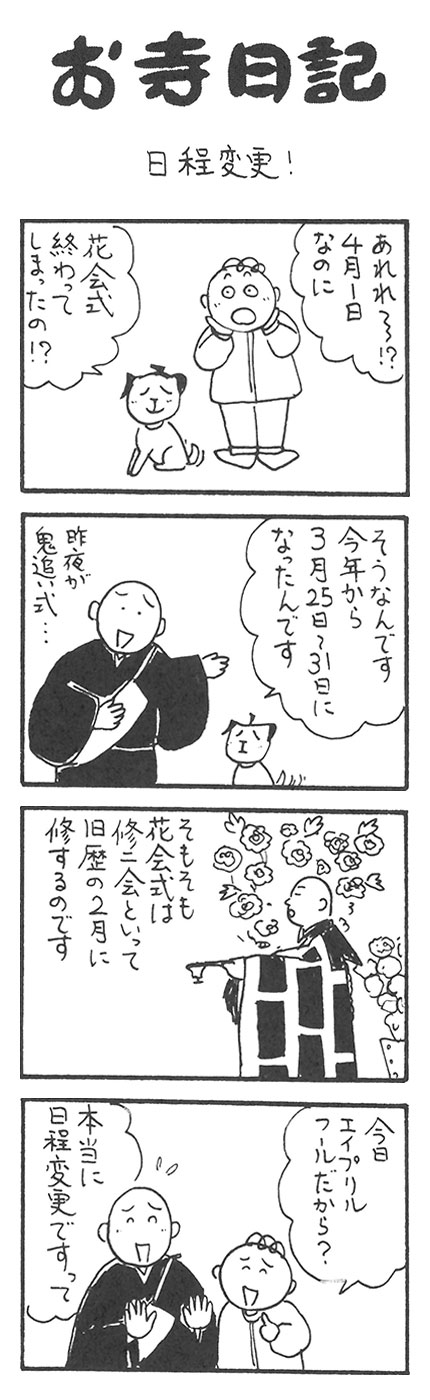 お寺日記
日程変更!
あれれ〜!?
4月1日
なのに
花会式
終わって
しまったの!?
そうなんです
今年から
3月25日〜31日に
なったんです
昨夜が
鬼追い式…
そもそも
花会式は
修二会といって
旧歴の2月に
修するのです
今日
エイプリル
フールだから?
本当に
日程変更ですって